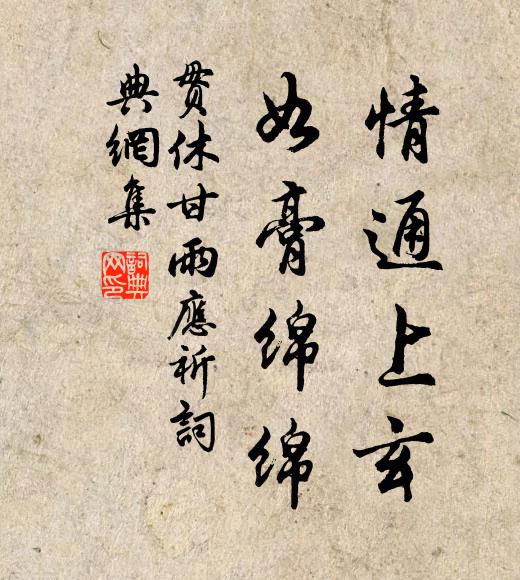 情通上玄
如膏绵绵
贯休甘雨應祈詞
典網集
詞典網印